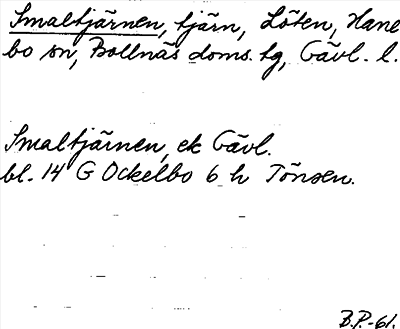 Smaltjärnen, tjärn, Löten, Hane
bo sn, Bollnäs doms. tg, Gävl. l.
Smaltjärnen, ek Gävl.
bl. 14 G Ockelbo 6 h Tönsen.
B.P.-61.